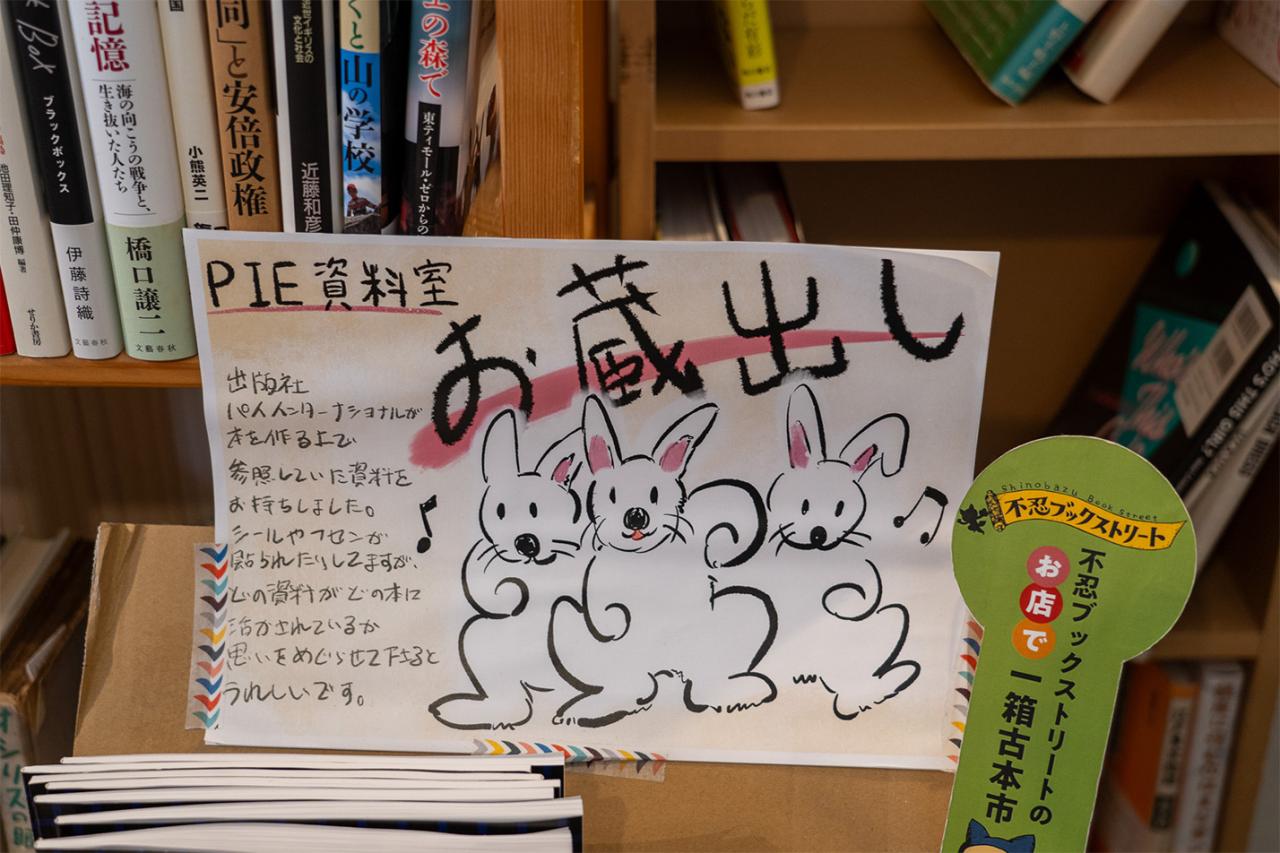 Box
ブラックボックス
伊藤詩織
文藝春秋
池田理知子・田仲康博 編著
せりか書房
記憶
海の向こうの戦争と、
生き抜いた人たち
橋口譲二
文藝春秋
小熊英二
同」と安倍政権
近世イギリスの
文化と社会
近藤和彦
くと
山の学校
の森で
東ティモール・ゼロからの
PIE資料室
お蔵出し
出版社
パイインターナショナルが
本を作る上で
参照していた資料を
お持ちしました。
シールやフセンが
貼られたりしてますが、
どの資料がどの本に
活かされているか
思いをめぐらせて下さると
うれしいです。
Shinobazu Book Street
不忍ブックストリート
不忍ブックストリートの
お店で
一箱古本市
WHO'S THIS GIRL